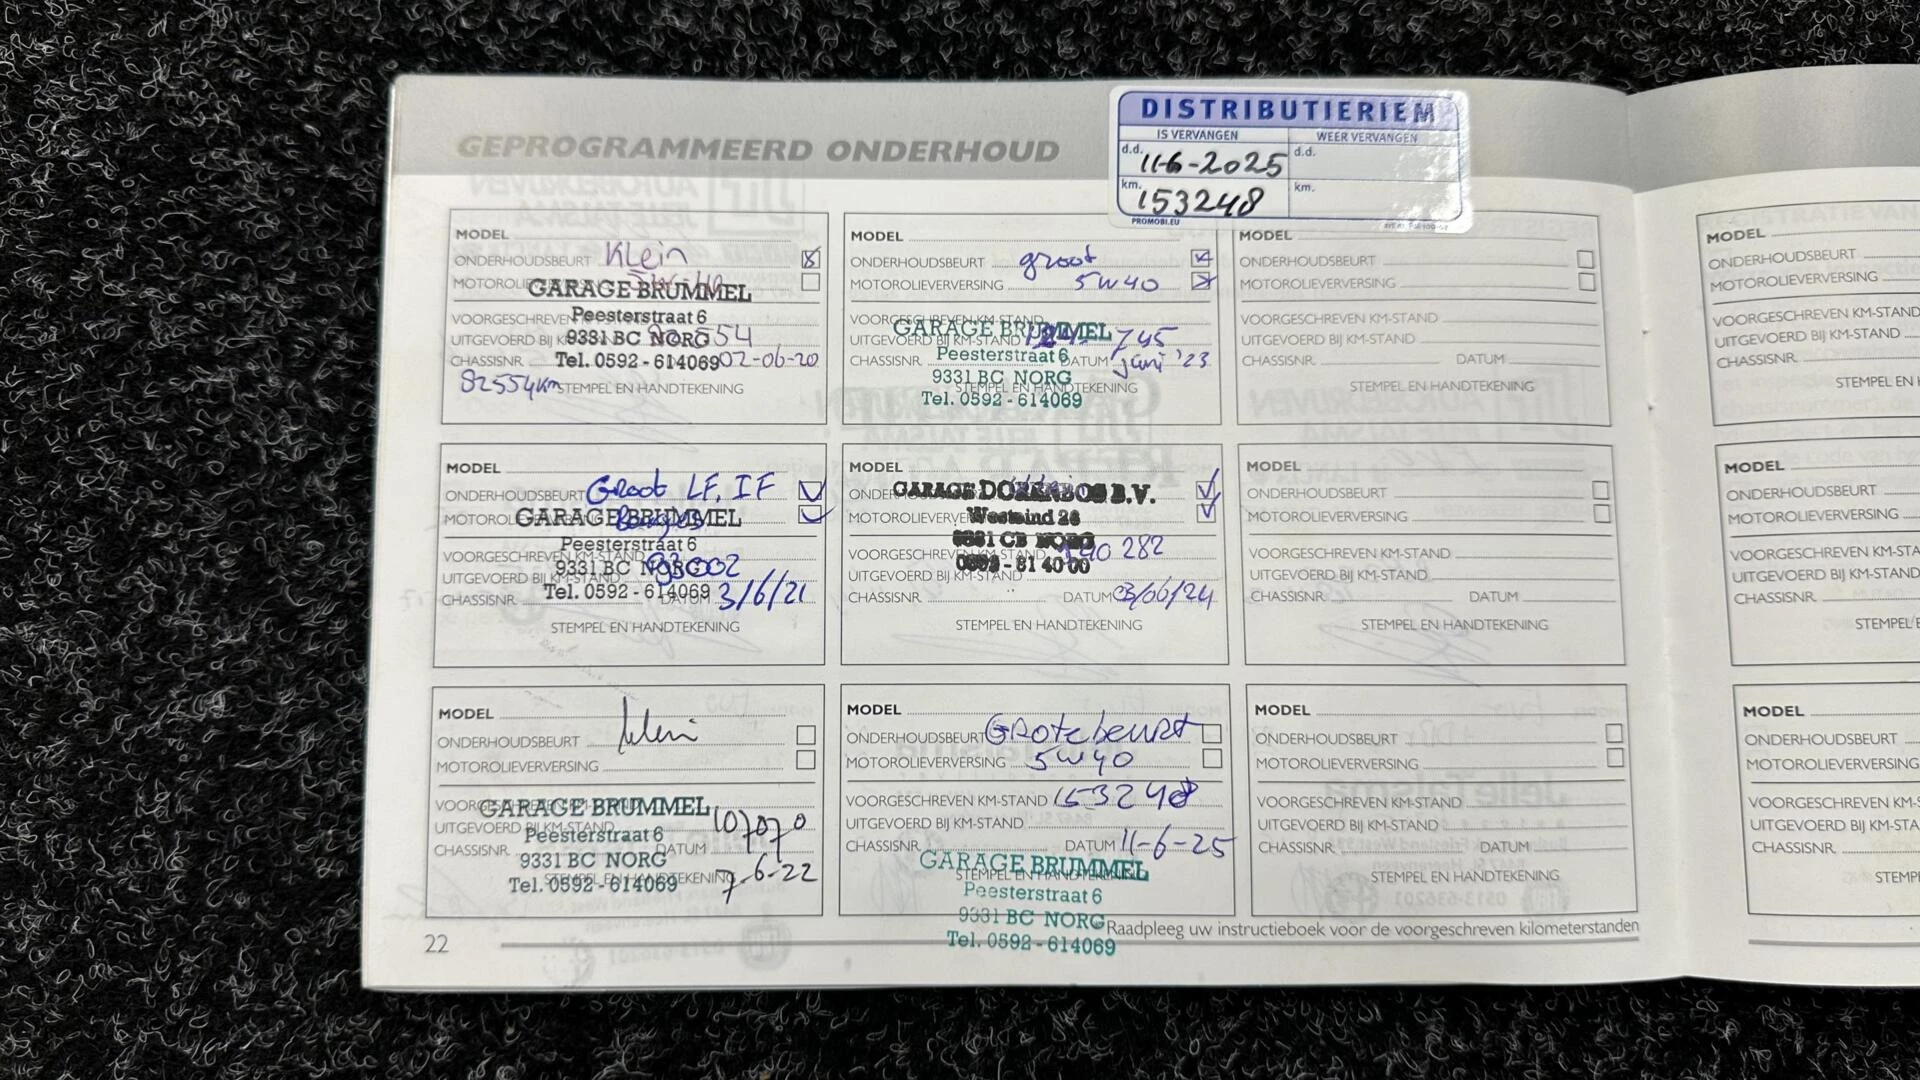 GEPROGRAMMEERD ONDERHOUD
DISTRIBUTIERIEM
IS VERVANGEN
WEER VERVANGEN
d.d. 11-6-2025
d.d.
km. 153248
km.
PROMOBI.EU
MODEL
ONDERHOUDSBEURT Klein
GARAGE BRUMMEL
Peesterstraat 6
9331 BC NORG
CHASSISNR.
Tel. 0592 - 614069
02-06-20
82554km
STEMPEL EN HANDTEKENING
MODEL
ONDERHOUDSBEURT Groot LF, IF
GARAGE BRUMMEL
Peesterstraat 6
VOORGESCHREVEN KM-STAND
9331 BC NORG
93002
UITGEVOERD BIJ KM-STAND
CHASSISNR.
Tel. 0592 - 614069
DATUM 3/6/21
STEMPEL EN HANDTEKENING
MODEL
ONDERHOUDSBEURT klein
MOTOROLIEVERVERSING
GARAGE BRUMMEL
107070
UITGEVOERD BIJ KM-STAND
Peesterstraat 6
CHASSISNR.
DATUM
9331 BC NORG
7-6-22
Tel. 0592 - 614069
MODEL
ONDERHOUDSBEURT groot
MOTOROLIEVERVERSING 5W40
VOORGESCHREVEN KM-STAND
GARAGE BRUMMEL
UITGEVOERD BIJ KM-STAND
745
Peesterstraat 6
CHASSISNR.
DATUM juni '23
9331 BC NORG
STEMPEL EN HANDTEKENING
Tel. 0592 - 614069
MODEL
GARAGE DORENBOS B.V.
Westeind 26
9331 CB NORG
VOORGESCHREVEN KM-STAND
140 282
UITGEVOERD BIJ KM-STAND
CHASSISNR.
DATUM 03/06/24
STEMPEL EN HANDTEKENING
MODEL
ONDERHOUDSBEURT Grote beurt
MOTOROLIEVERVERSING 5W40
VOORGESCHREVEN KM-STAND 153248
UITGEVOERD BIJ KM-STAND
CHASSISNR.
DATUM 11-6-25
GARAGE BRUMMEL
STEMPEL EN HANDTEKENING
Peesterstraat 6
9331 BC NORG
Tel. 0592 - 614069
MODEL
ONDERHOUDSBEURT
MOTOROLIEVERVERSING
VOORGESCHREVEN KM-STAND
UITGEVOERD BIJ KM-STAND
CHASSISNR.
DATUM
STEMPEL EN HANDTEKENING
MODEL
ONDERHOUDSBEURT
MOTOROLIEVERVERSING
VOORGESCHREVEN KM-STAND
UITGEVOERD BIJ KM-STAND
CHASSISNR.
DATUM
STEMPEL EN HANDTEKENING
MODEL
ONDERHOUDSBEURT
MOTOROLIEVERVERSING
VOORGESCHREVEN KM-STAND
UITGEVOERD BIJ KM-STAND
CHASSISNR.
DATUM
STEMPEL EN HANDTEKENING
22
Raadpleeg uw instructieboek voor de voorgeschreven kilometerstanden
MODEL
ONDERHOUDSBEURT
MOTOROLIEVERVERSING
VOORGESCHREVEN KM-STAND
UITGEVOERD BIJ KM-STAND
CHASSISNR.
STEMPEL EN H
MODEL
ONDERHOUDSBEURT
MOTOROLIEVERVERSING
VOORGESCHREVEN KM-STAND
UITGEVOERD BIJ KM-STAND
CHASSISNR.
STEMPEL E
MODEL
ONDERHOUDSBEURT
MOTOROLIEVERVERSING
VOORGESCHREVEN KM-S
UITGEVOERD BIJ KM-STA
CHASSISNR.
STEMP